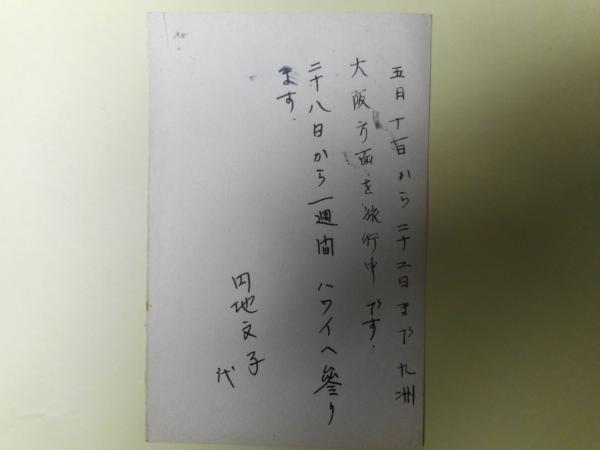 五月十一日から二十二日まで九洲
大阪方面を旅行中です.
二十八日から一週間ハワイへ參り
ます.
円地文子
代